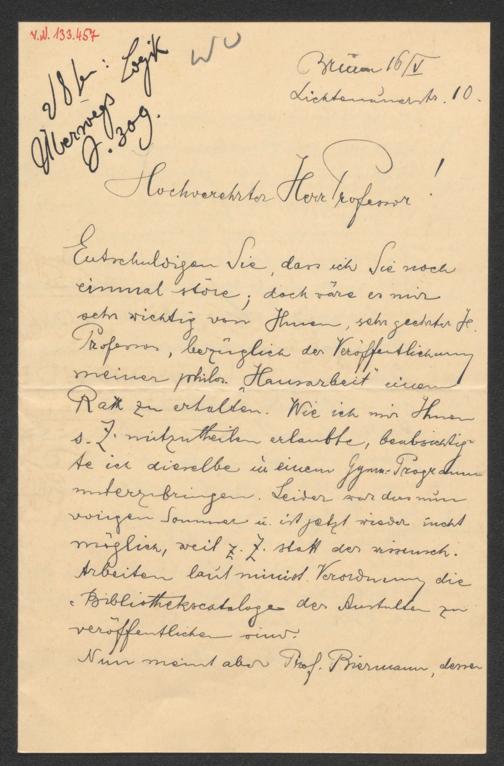 V.N. 133.457
2/8 Logik
Überwegs
J. 309.
Brünn 16/V
Lichtenauerstr. 10.
Hochverehrter Herr Professor!
Entschuldigen Sie, dass ich Sie noch
einmal störe; doch wäre es mir
sehr wichtig von Ihnen, sehr geehrter H.
Professor, bezüglich der Veröffentlichung
meiner philos. "Hausarbeit" einen
Rath zu erhalten. Wie ich mir Ihnen
s. Z. mitzutheilen erlaubte, beabsichtig-
te ich dieselbe in einem Gymn.-Programm
unterzubringen. Leider war das nun
vorigen Sommer u. ist jetzt wieder nicht
möglich, weil z. Z. statt der wissensch.
Arbeiten laut minist. Verordnung die
Bibliothekscataloge der Anstalten zu
veröffentlichen sind.
Nun meint aber Prof. Biermann, dessen